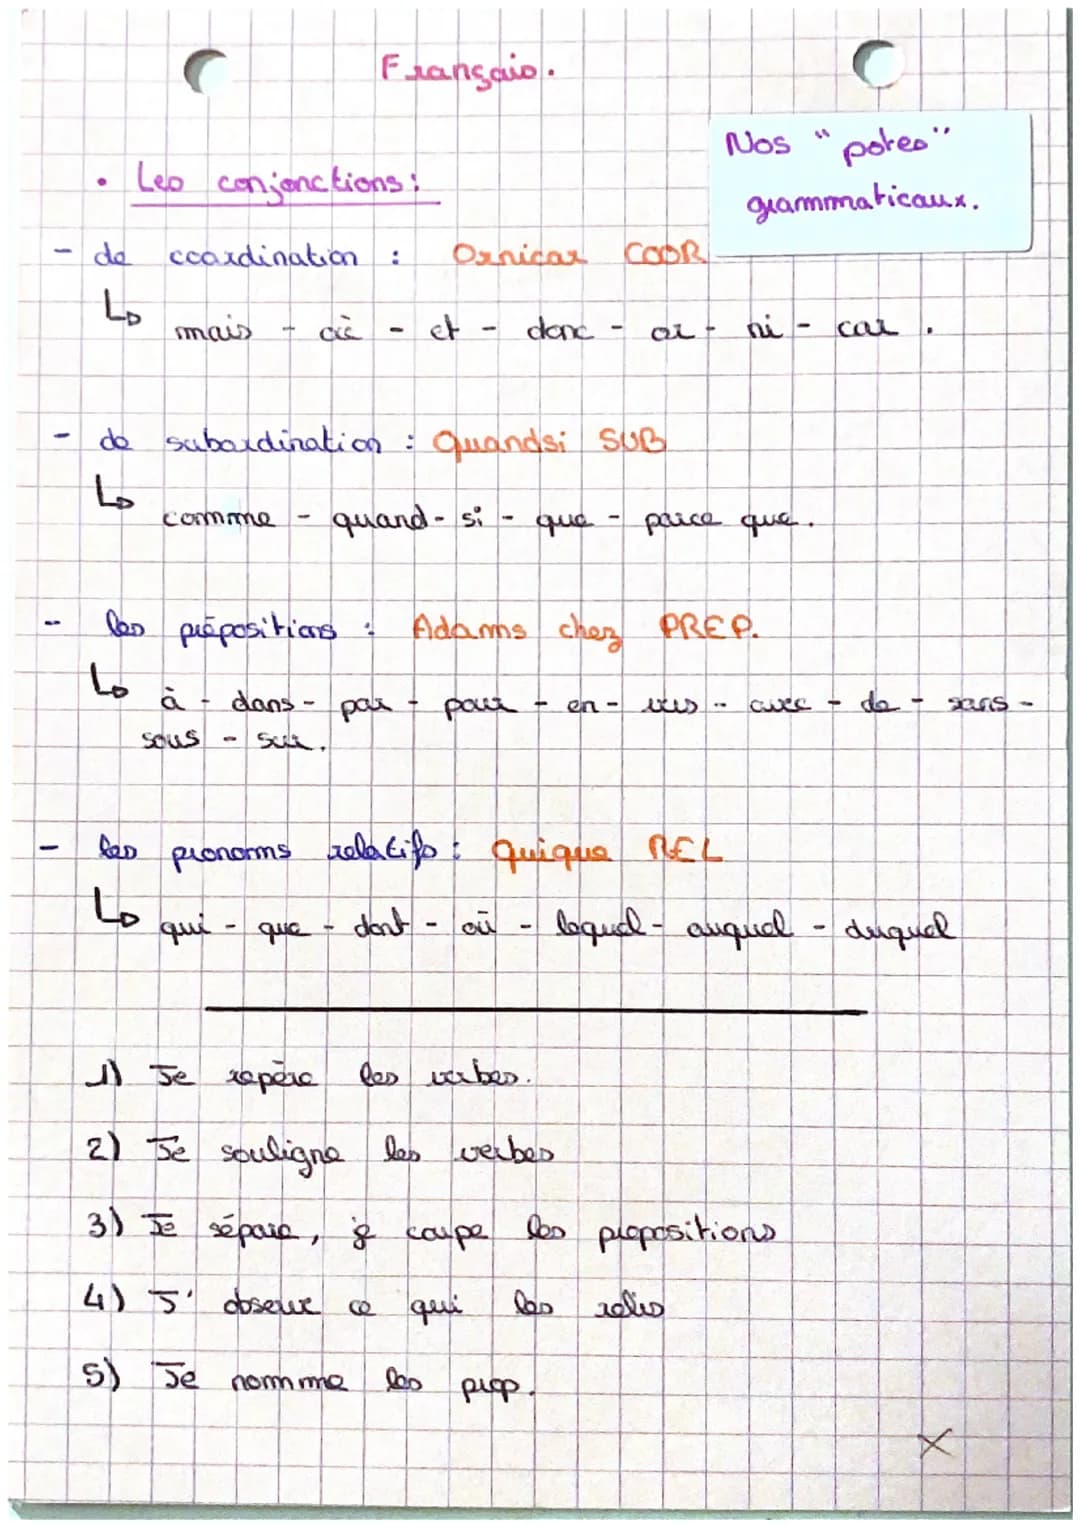 Français.
Nos "potes"
grammaticaux.
• Les conjonctions :
- de coordination : Ornicar COOR
↳ mais - où - et - donc - or - ni - car .
- de subordination : Quandsi SUB
↳ comme - quand - si - que - parce que .
- les prépositions : Adams chez PREP.
↳ à - dans - par - pour - en - vers - avec - de - sans -
sous - sur.
- les pronoms relatifs : Quique REL
↳ qui - que - dont - où - lequel - auquel - duquel
1) Je repère les verbes.
2) Je souligne les verbes
3) Je sépare, je coupe les propositions
4) J' observe ce qui les relis
5) Je nomme les prop.